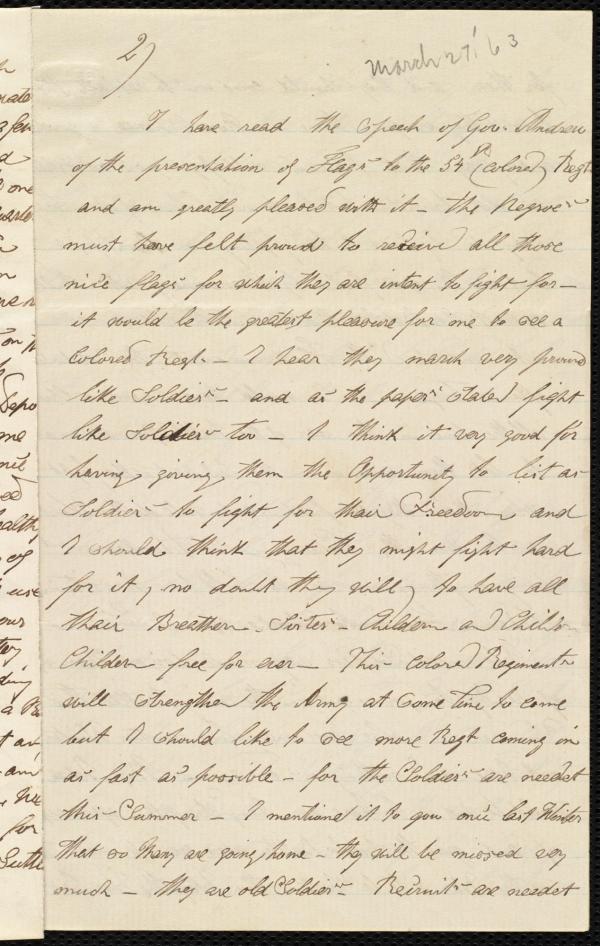 2)
March 27, '63
I have read the Speech of Gov. Andrew
of the presentation of Flags to the 54th (colored) Regt
and am greatly pleased with it - the Negroes
must have felt proud to receive all those
nice flags for which they are intent to fight for -
it would be the greatest pleasure for me to see a
Colored Regt. - I hear they march very proud
like Soldiers - and as the papers stated fight
like Soldiers too - I think it very good for
having giving them the Opportunity to list as
Soldiers to fight for thair Freedoom and
I should think that they might fight hard
for it, no doubt they will, to have all
thair Breathern - Sisters - Childern and Child's
Childern free for ever - This colored Regiments
will strengthen the Army at some Time to come
but I should like to see more Regt coming in
as fast as possible - for the Soldiers are needet
this Summer - I mentioned it to you once last Winter
that so many are going home - they will be missed very
much - they are old Soldiers - Recruits are needet
nate
a few
one
me
ed
of
use
for